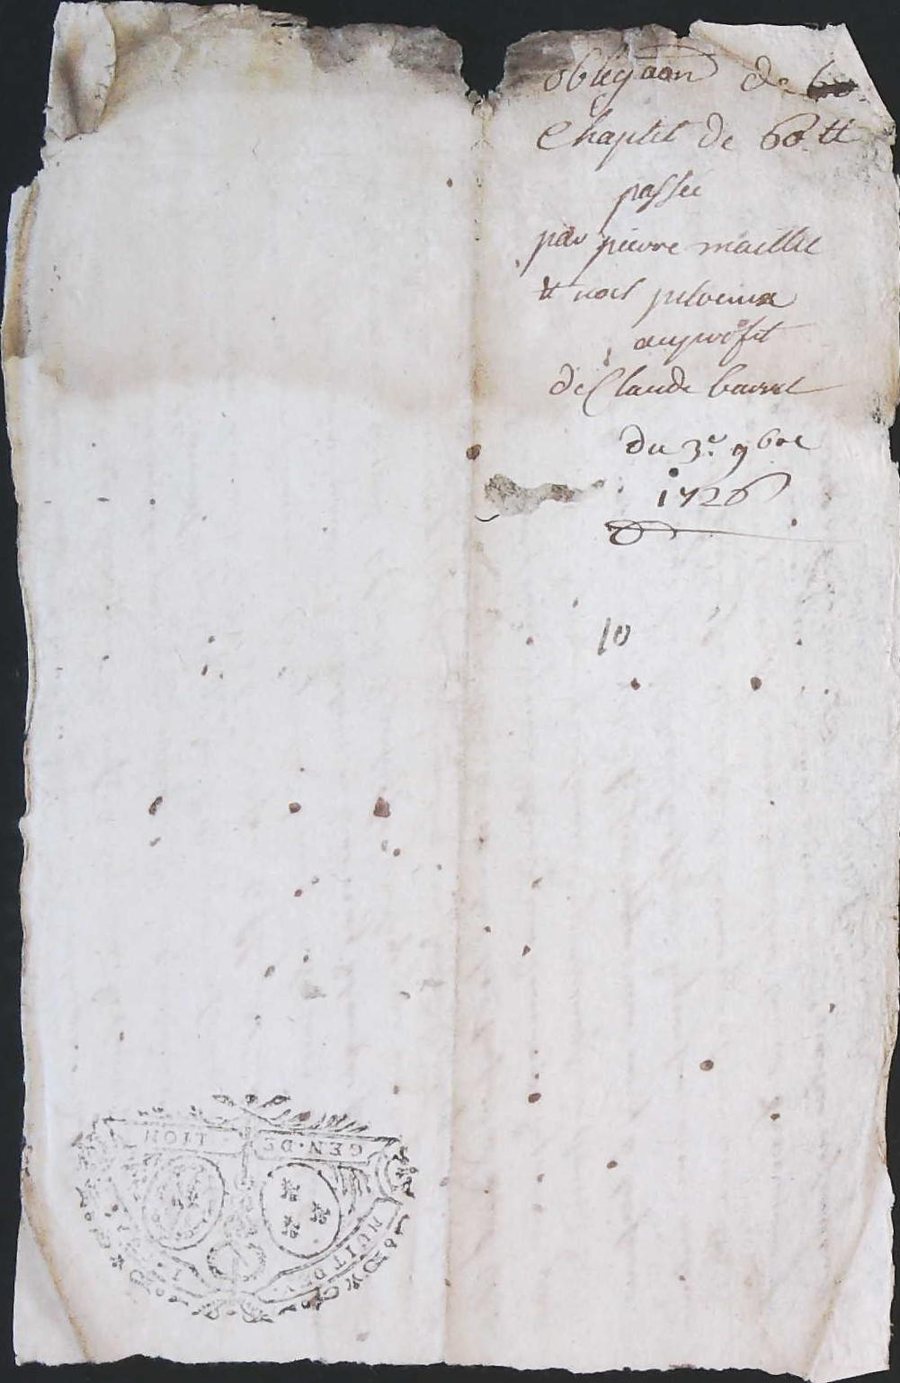 obligaon de
Chaptel de 60 tt
passée
par pierre maillet
et noel
au profit
de Claude barret
du 3e. 9bre
1726
10
GEN. DE LION
HUIT DE